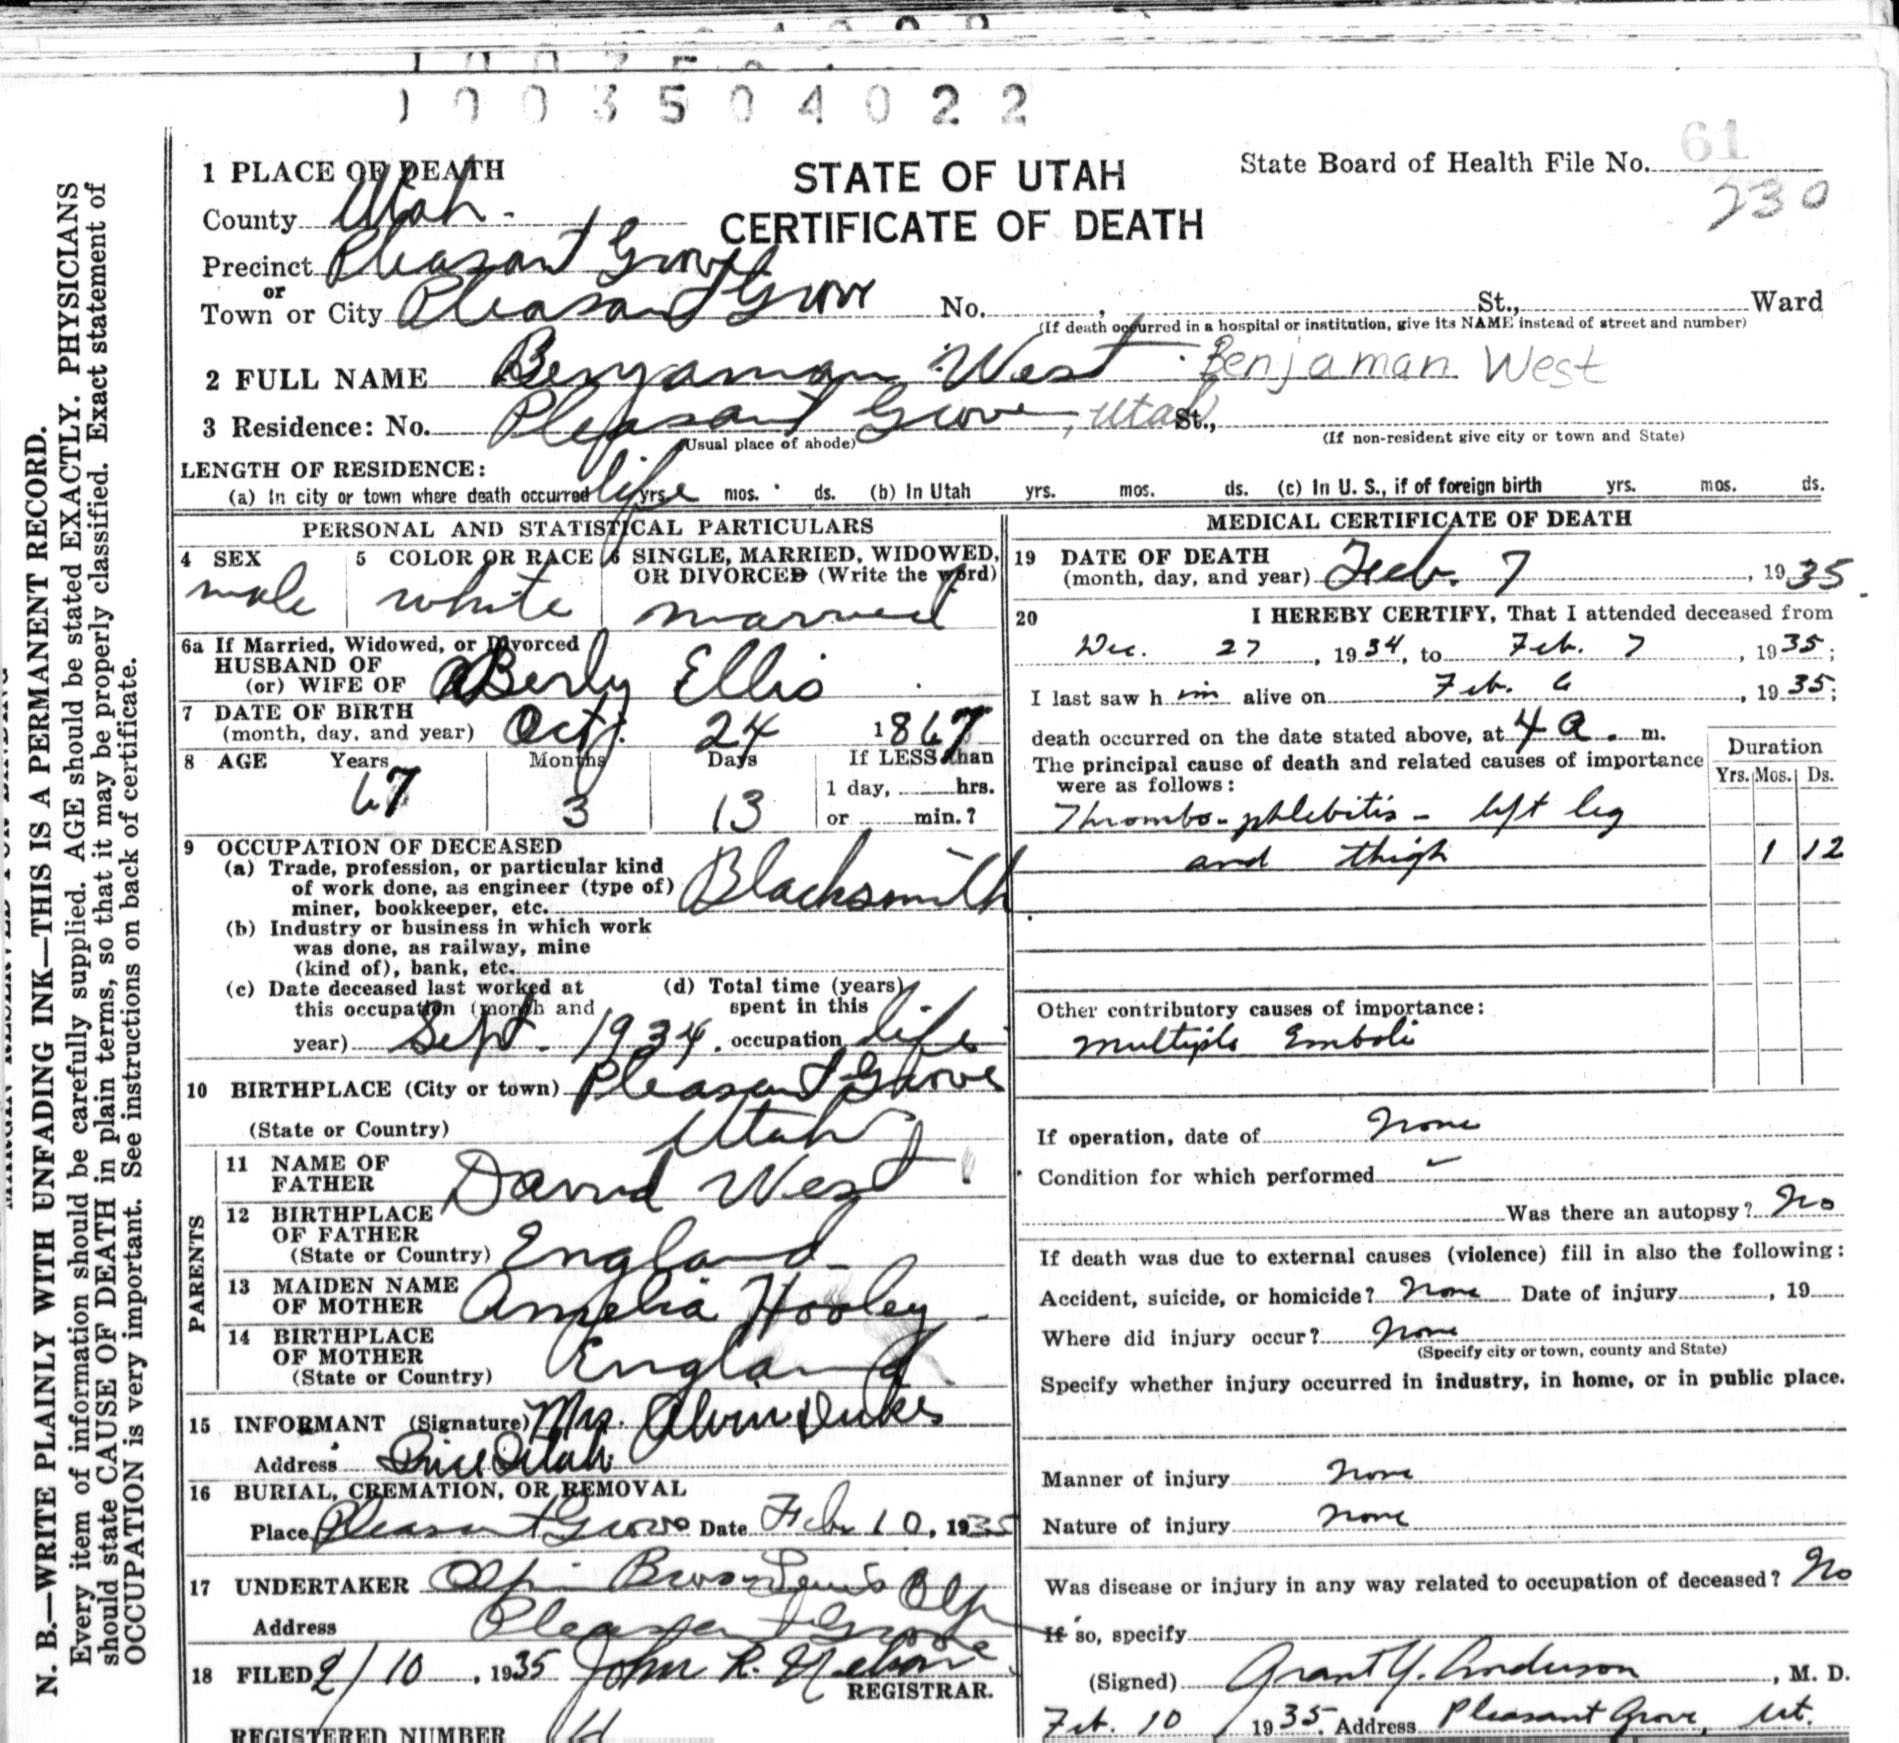 1003504022
61
State Board of Health File No.
230
STATE OF UTAH
CERTIFICATE OF DEATH
1 PLACE OF DEATH
County Utah
Precinct Pleasant Grove
or
Town or City Pleasant Grove No. St., Ward
(If death occurred in a hospital or institution, give its NAME instead of street and number)
2 FULL NAME Benjaman West Benjaman West
3 Residence: No. Pleasant Grove, Utah St.,
(Usual place of abode) (If non-resident give city or town and State)
LENGTH OF RESIDENCE:
(a) In city or town where death occurred life yrs. mos. ds. (b) In Utah yrs. mos. ds. (c) In U. S., if of foreign birth yrs. mos. ds.
PERSONAL AND STATISTICAL PARTICULARS
4 SEX 5 COLOR OR RACE 6 SINGLE, MARRIED, WIDOWED,
OR DIVORCED (Write the word)
male white married
6a If Married, Widowed, or Divorced
HUSBAND OF
(or) WIFE OF Berly Ellis
7 DATE OF BIRTH
(month, day, and year) Oct. 24 1867
8 AGE Years Months Days If LESS than
1 day, hrs.
67 3 13 or min.?
9 OCCUPATION OF DECEASED
(a) Trade, profession, or particular kind
of work done, as engineer (type of) Blacksmith
miner, bookkeeper, etc.
(b) Industry or business in which work
was done, as railway, mine
(kind of), bank, etc.
(c) Date deceased last worked at (d) Total time (years)
this occupation (month and spent in this
year) Sept. 1934. occupation life
10 BIRTHPLACE (City or town) Pleasant Grove
(State or Country) Utah
PARENTS
11 NAME OF
FATHER David West
12 BIRTHPLACE
OF FATHER
(State or Country) England
13 MAIDEN NAME
OF MOTHER Amelia Hooley
14 BIRTHPLACE
OF MOTHER
(State or Country) England
15 INFORMANT (Signature) Mrs. Alvin Dukes
Address Price Utah
16 BURIAL, CREMATION, OR REMOVAL
Place Pleasant Grove Date Feb 10, 1935
17 UNDERTAKER Olpin Bros
Address Pleasant Grove
18 FILED 2/10, 1935 John R.
REGISTRAR.
REGISTERED NUMBER
MEDICAL CERTIFICATE OF DEATH
19 DATE OF DEATH
(month, day, and year) Feb. 7, 1935
20 I HEREBY CERTIFY, That I attended deceased from
Dec. 27, 1934, to Feb. 7, 1935;
I last saw h im alive on Feb. 6, 1935;
death occurred on the date stated above, at 4 a. m.
The principal cause of death and related causes of importance
were as follows:
Duration
Yrs. Mos. Ds.
Thrombo-phlebitis - left leg
and thigh 1 12
Other contributory causes of importance:
multiple Emboli
If operation, date of none
Condition for which performed -
Was there an autopsy? No
If death was due to external causes (violence) fill in also the following:
Accident, suicide, or homicide? None Date of injury , 19
Where did injury occur? None
(Specify city or town, county and State)
Specify whether injury occurred in industry, in home, or in public place.
Manner of injury none
Nature of injury none
Was disease or injury in any way related to occupation of deceased? No
If so, specify
(Signed) Grant Y. Anderson, M. D.
Feb. 10 1935. Address Pleasant Grove, Ut.
N. B.—WRITE PLAINLY WITH UNFADING INK—THIS IS A PERMANENT RECORD.
Every item of information should be carefully supplied. AGE should be stated EXACTLY. PHYSICIANS
should state CAUSE OF DEATH in plain terms, so that it may be properly classified. Exact statement of
OCCUPATION is very important. See instructions on back of certificate.